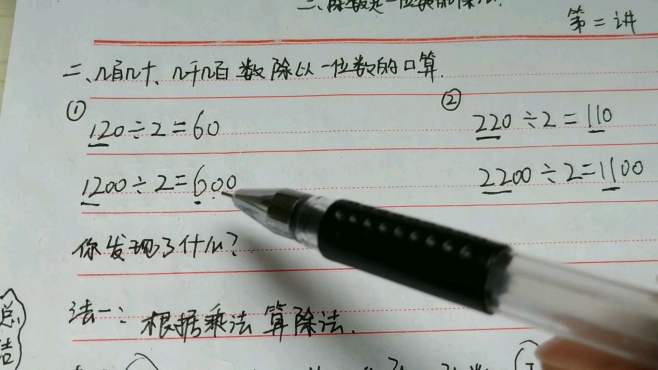 二、除数是一位数的除法.
第二讲
二、几百几十、几千几百数除以一位数的口算.
① 120÷2=60
② 220÷2=110
1200÷2=600
2200÷2=1100
你发现了什么?
法一: 根据乘法算除法.
总结